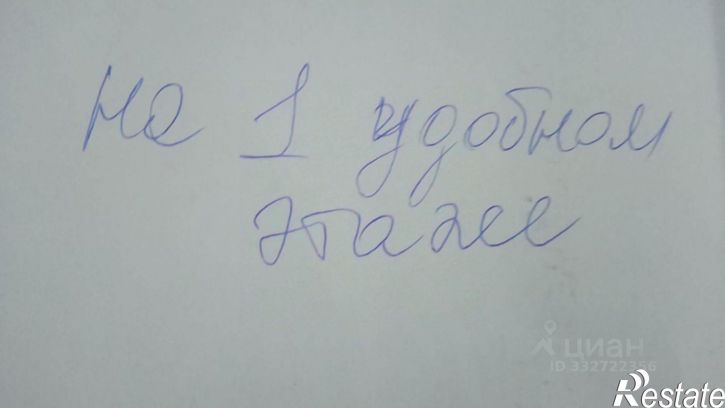 на 1 удобном
этаже
циан
ID 332722356
Restate